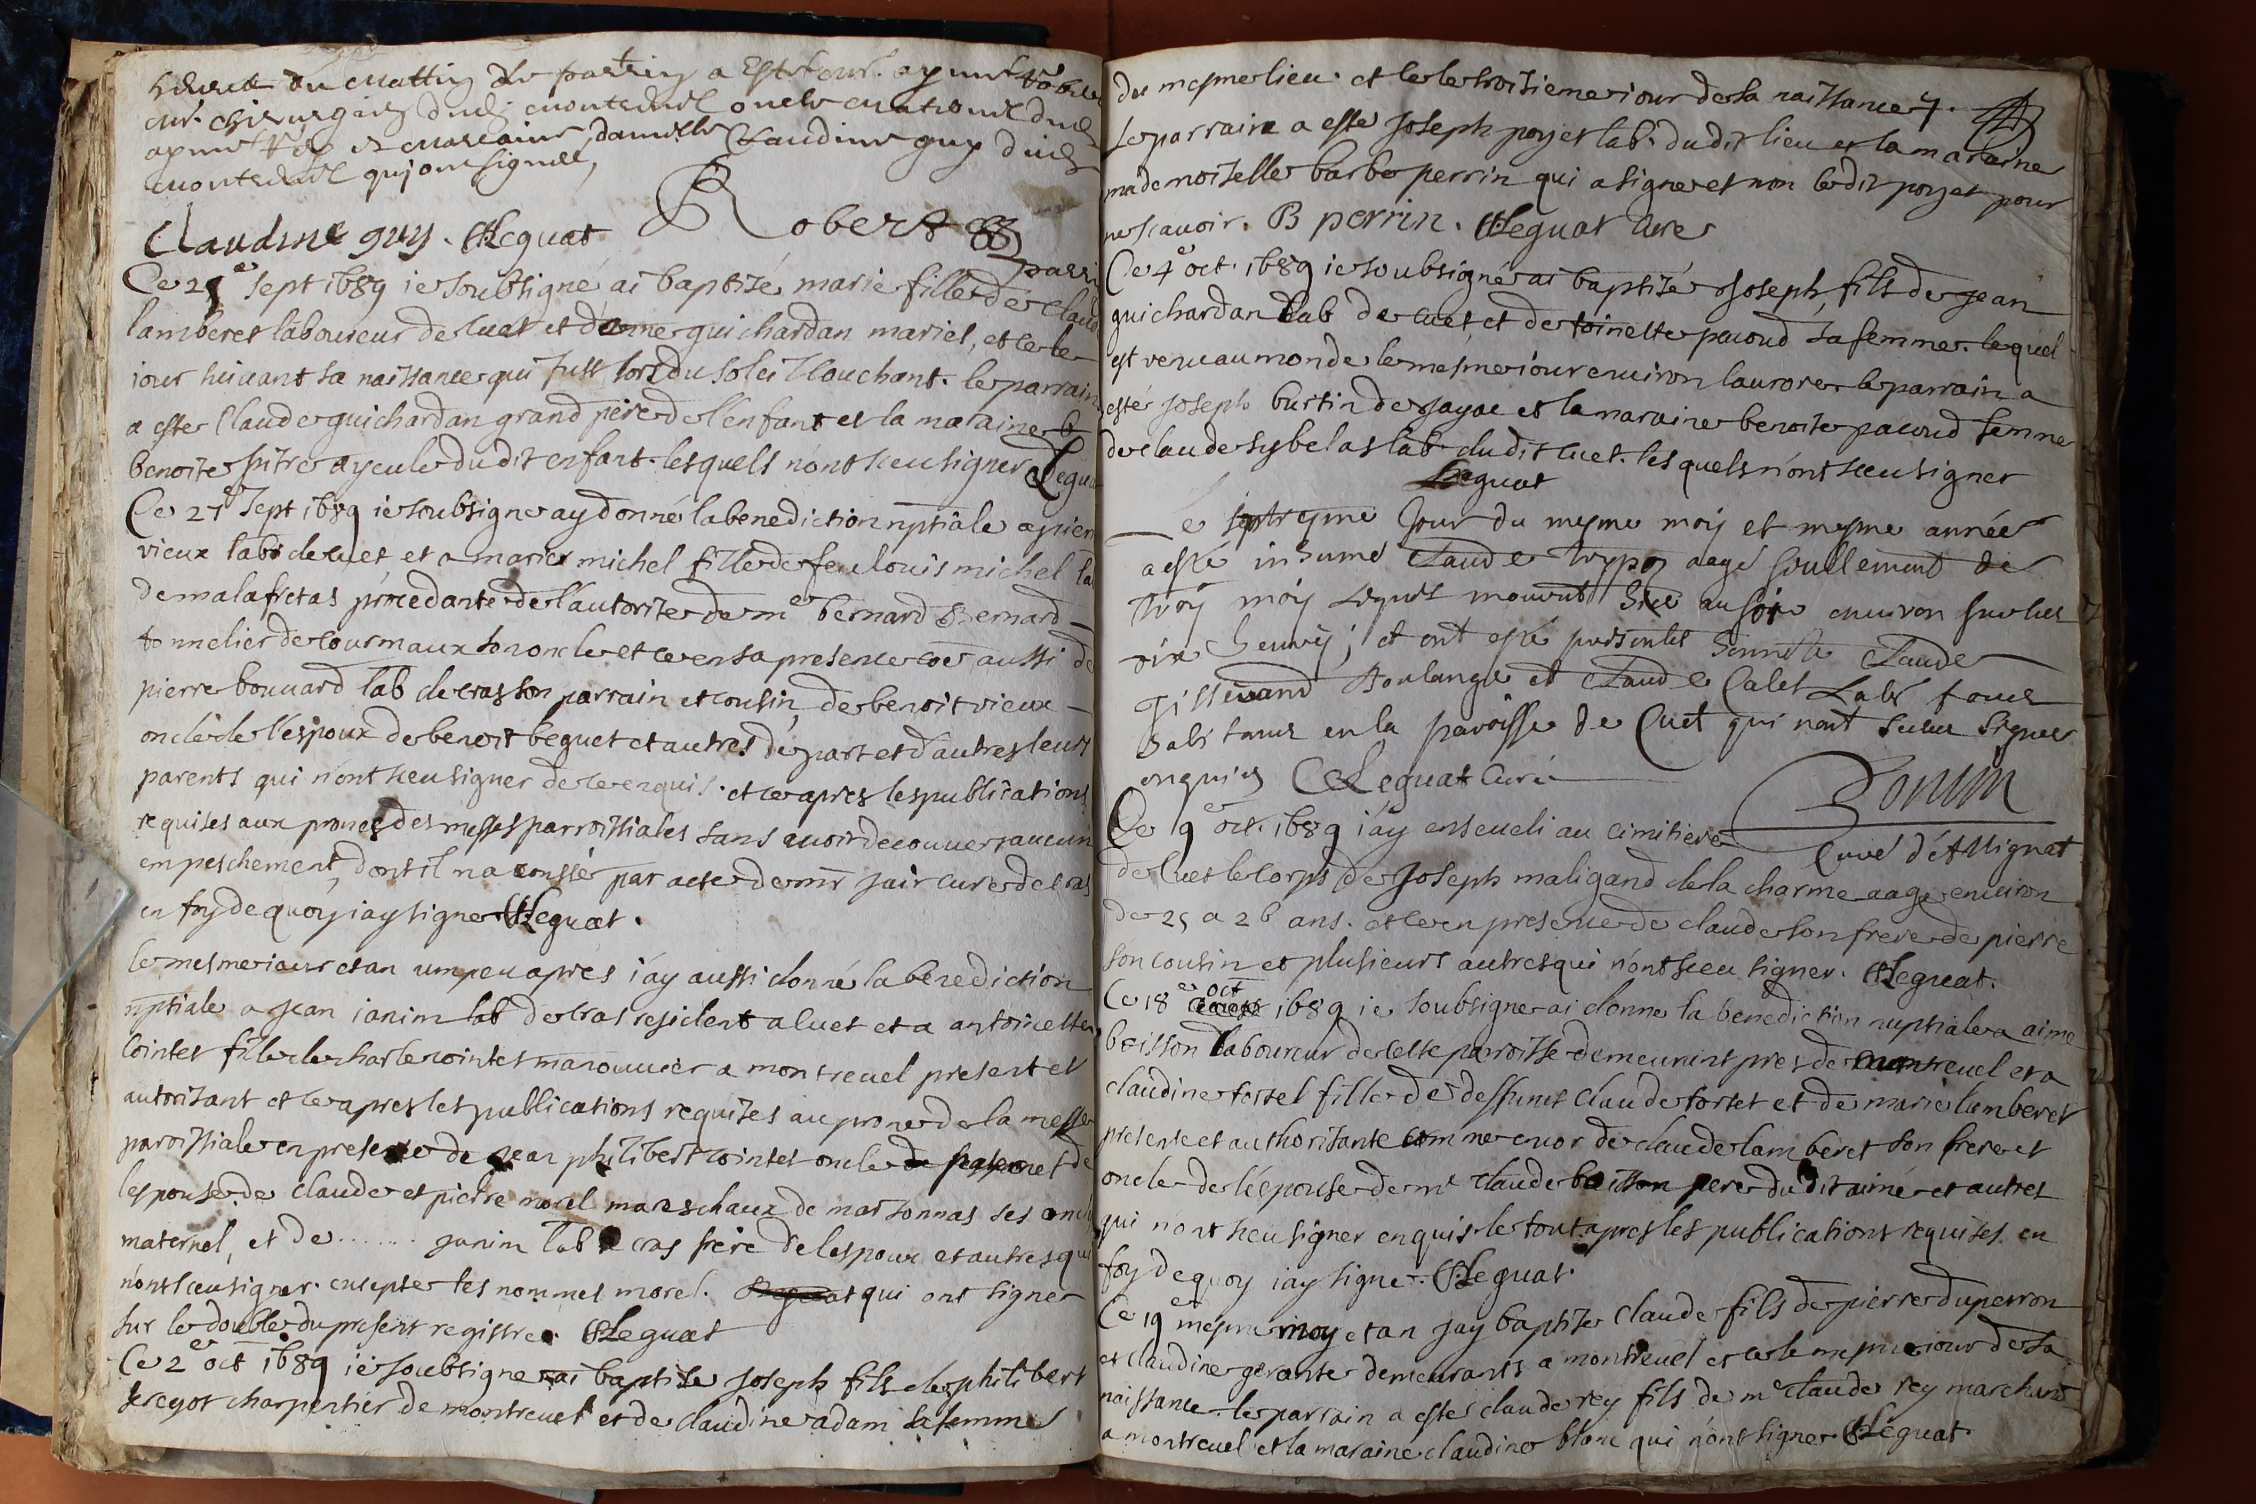 heures du mattin le parrin a esté
chirurgien dud montrevel
et maraine damlle Claudine guy dud
montrevel qui ont signéé,
Claudine guy. CLeguat Robert
Ce 25e sept 1689 ie soubsigné ai baptizé marie fille de Claud
lamberet laboureur de cuet et d'eme guichardan mariés, et ce le
iour suivant sa naissance qui fust lors du soleil couchant. le parrain
a este Claude guichardan grand pere de l'enfant et la maraine
benoite pitre ayeule dudit enfant. lesquels n'ont sceu signer CLegua
Ce 27e sept 1689 ie soubsigne ay donné la benediction nptiale a pierr
vieux labr de cuet et a marie michel fille de feu louis michel la
de malafretas procedante de l'autorite de mr bernard Bernard
tonnelier de courmaux son oncle et ce en sa presence coe aussi de
pierre bouvard lab de cras son parrain et cousin, de benoit vieux
oncle de l'espoux de benoit beguet et autres de part et d'autres leurs
parents qui n'ont sceu signer de ce enquis. et ce apres les publications
requises aux prones des messes parroissiales sans avoir decouvert aucun
empeschement, dont il n'a consté par acte de mr jair cure de cras
en foy de quoy iay signe CLeguat.
le mesme iour et an un peu apres i'ay aussi donné la benediction
nptiale a jean ianin lab de cras resident a cuet et a antoinette
Cointet fille de charle cointet manouvrier a montrevel present et
autorisant et ce apres les publications requises au prone de la messe
paroissiale en presence de jean philibert cointet oncle de
lespouse de claude et pierre morel mareschaux de marsonnas ses oncl
maternel, et de ....... janin lab a cras frere de lespoux et autres qui
n'ont sceu signer. excepte les nommes morel. qui ont signer
sur le double du present registre. CLeguat
Ce 2e oct 1689 ie soubsigne ai baptise joseph fils de philibert
charpentier de montrevel et de claudine adam sa femme
du mesme lieu. et ce le troisieme iour de sa naissance.
Le parrain a este joseph poyet lab. dudit lieu et la maraine
mademoiselle barbe perrin qui a signe et non ledit poyet pour
ne scavoir. B perrin. CLeguat Cure
Ce 4e oct. 1689 ie soubsigné ai baptisé joseph, fils de jean
guichardan lab de cuet, et de toinette pacoud sa femme. lequel
est venu au monde le mesme iour environ l'aurore le parrain a
esté joseph burtin de jayac et la maraine benoite pacoud femme
de claude sybelas lab. dudit cuet. lesquels n'ont sceu signer
Leguat
Le septeyme jour du mesme mois et mesme année
a esté inhumé Claude aagé seullement de
trois mois lequel mourut hier au soir environ sur les
six heures; et ont esté presents honneste Claude
Boulanger et Claude Calet Labr tous
habitans en la paroisse de Cuet qui nont sceu signer
enquis CLeguat Curé Bonin
Curé d'Attignat
Ce 9e oct. 1689 i'ay enseveli au cimitiere
de Cuet le corps de Joseph maligand de la charme aagé environ
de 25 a 26 ans. et ce en presence de claude son frere de pierre
son cousin et plusieurs autres qui n'ont sceu signer. CLeguat.
Ce 18e oct 1689 ie soubsigne ai donne la benediction nuptiale a aime
boisson laboureur de cette parroisse demeurant pres de montrevel et a
claudine tortet fille de deffunct claude tortet et de marie lamberet
presente et authorisante comme encor de claude lamberet son frere et
oncle de lépouse de mr claude boisson pere dudit aimé et autres
qui n'ont sceu signer enquis le tout apres les publications requises. en
foy de quoy iay signe. CLeguat.
Ce 19e mesme moy et an jay baptise Claude fils de pierre duperron
et claudine gerante demeurants a montrevel et ce le mesme iour de sa
naissance. le parrain a esté claude rey fils de mr claude rey marchand
a montrevel et la maraine claudine blanc qui n'ont signe. CLeguat.